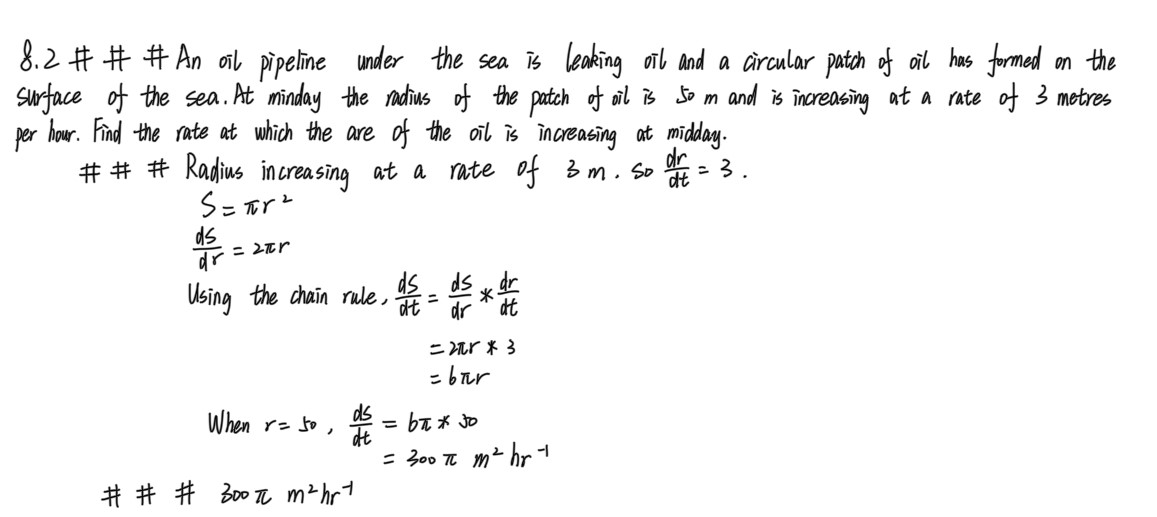 8.2 # # # An oil pipeline under the sea is leaking oil and a circular patch of oil has formed on the
surface of the sea. At minday the radius of the patch of oil is 50 m and is increasing at a rate of 3 metres
per hour. Find the rate at which the are of the oil is increasing at midday.
# # # Radius increasing at a rate of 3 m. so dr/dt = 3.
S = πr²
ds/dr = 2πr
Using the chain rule, ds/dt = ds/dr * dr/dt
= 2πr * 3
= 6πr
When r = 50, ds/dt = 6π * 50
= 300π m² hr⁻¹
# # # 300π m²hr⁻¹